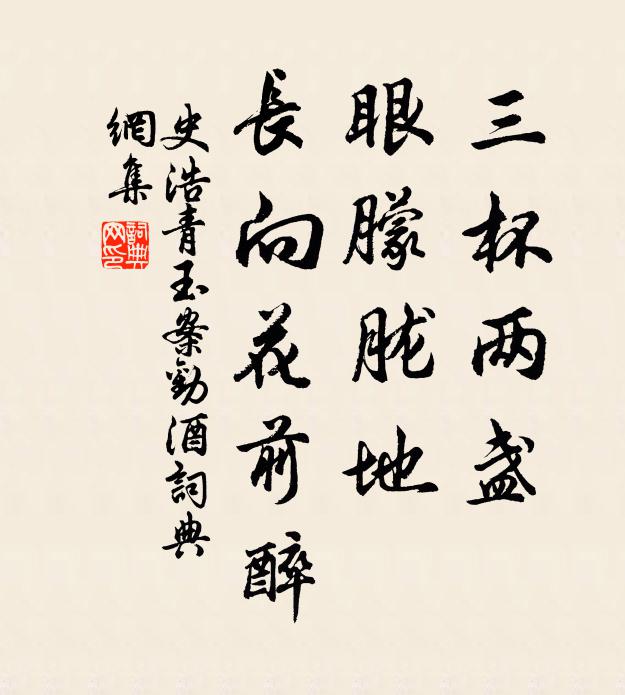 三杯两盏
眼朦胧地
長向花前醉
史浩青玉案勸酒詞典
網集
詞典
网印